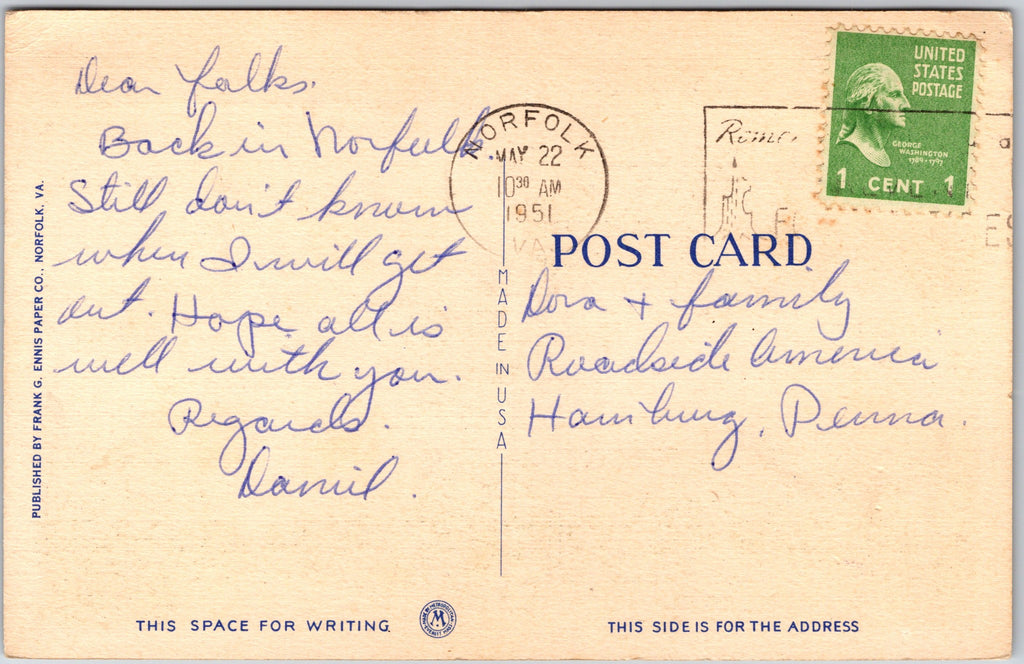 Dear folks.
Back in Norfolk.
Still don't know
when I will get
out. Hope all is
well with you.
Regards.
Daniel.
PUBLISHED BY FRANK G. ENNIS PAPER CO., NORFOLK, VA.
THIS SPACE FOR WRITING
MADE IN USA
NORFOLK
MAY 22
10 30 AM
1951
VA
UNITED
STATES
POSTAGE
GEORGE
WASHINGTON
1789-1797
1 CENT 1
POST CARD
Dora + family
Roadside America
Hamburg, Penna.
THIS SIDE IS FOR THE ADDRESS